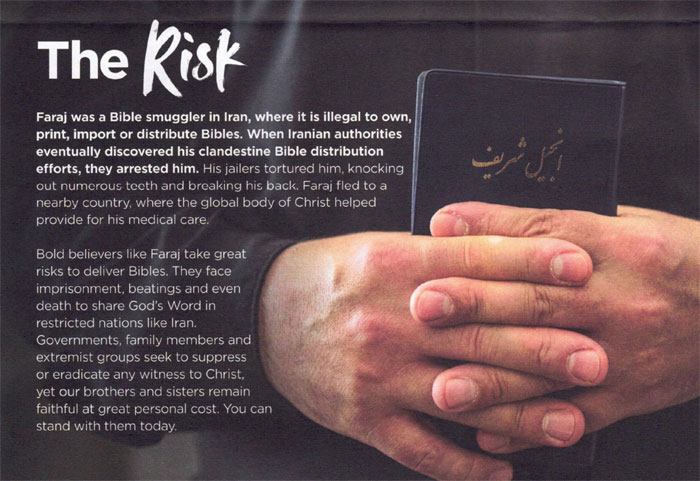 The Risk
Faraj was a Bible smuggler in Iran, where it is illegal to own,
print, import or distribute Bibles. When Iranian authorities
eventually discovered his clandestine Bible distribution
efforts, they arrested him. His jailers tortured him, knocking
out numerous teeth and breaking his back. Faraj fled to a
nearby country, where the global body of Christ helped
provide for his medical care.
انجیل شریف
Bold believers like Faraj take great
risks to deliver Bibles. They face
imprisonment, beatings and even
death to share God's Word in
restricted nations like Iran.
Governments, family members and
extremist groups seek to suppress
or eradicate any witness to Christ,
yet our brothers and sisters remain
faithful at great personal cost. You can
stand with them today.